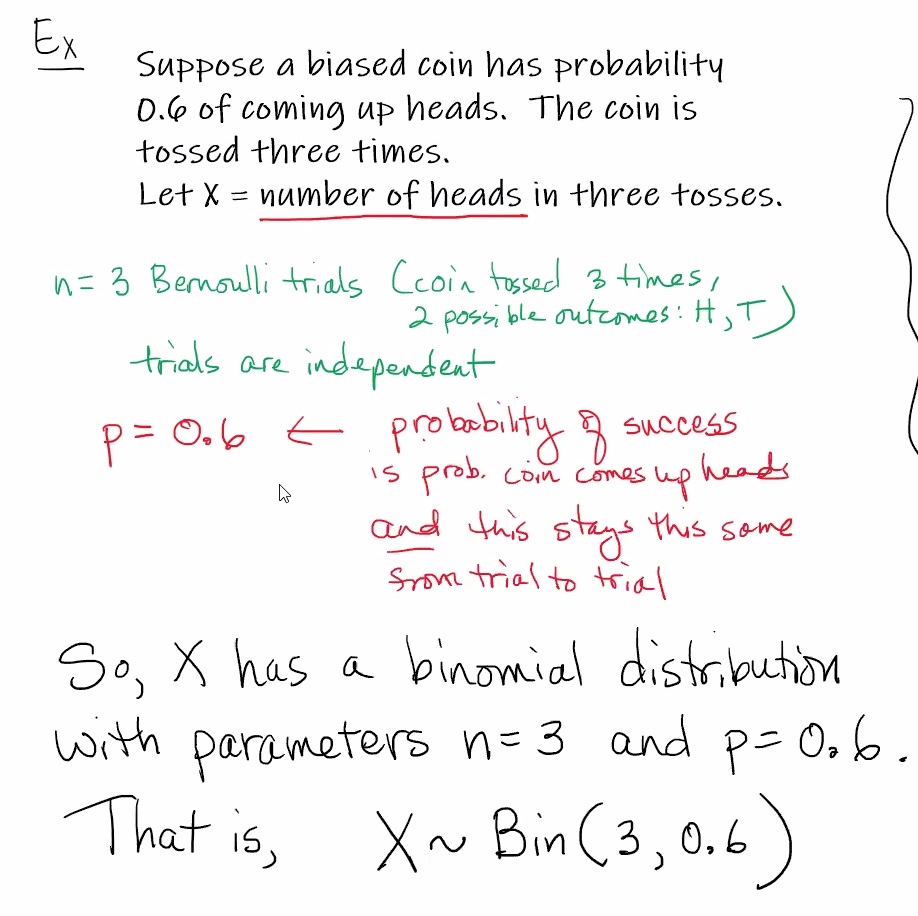 Ex
Suppose a biased coin has probability
0.6 of coming up heads. The coin is
tossed three times.
Let X = number of heads in three tosses.
n = 3 Bernoulli trials (coin tossed 3 times,
2 possible outcomes: H, T)
trials are independent
p = 0.6 ← probability of success
is prob. coin comes up heads
and this stays this same
from trial to trial
So, X has a binomial distribution
with parameters n = 3 and p = 0.6.
That is, X ~ Bin(3, 0.6)